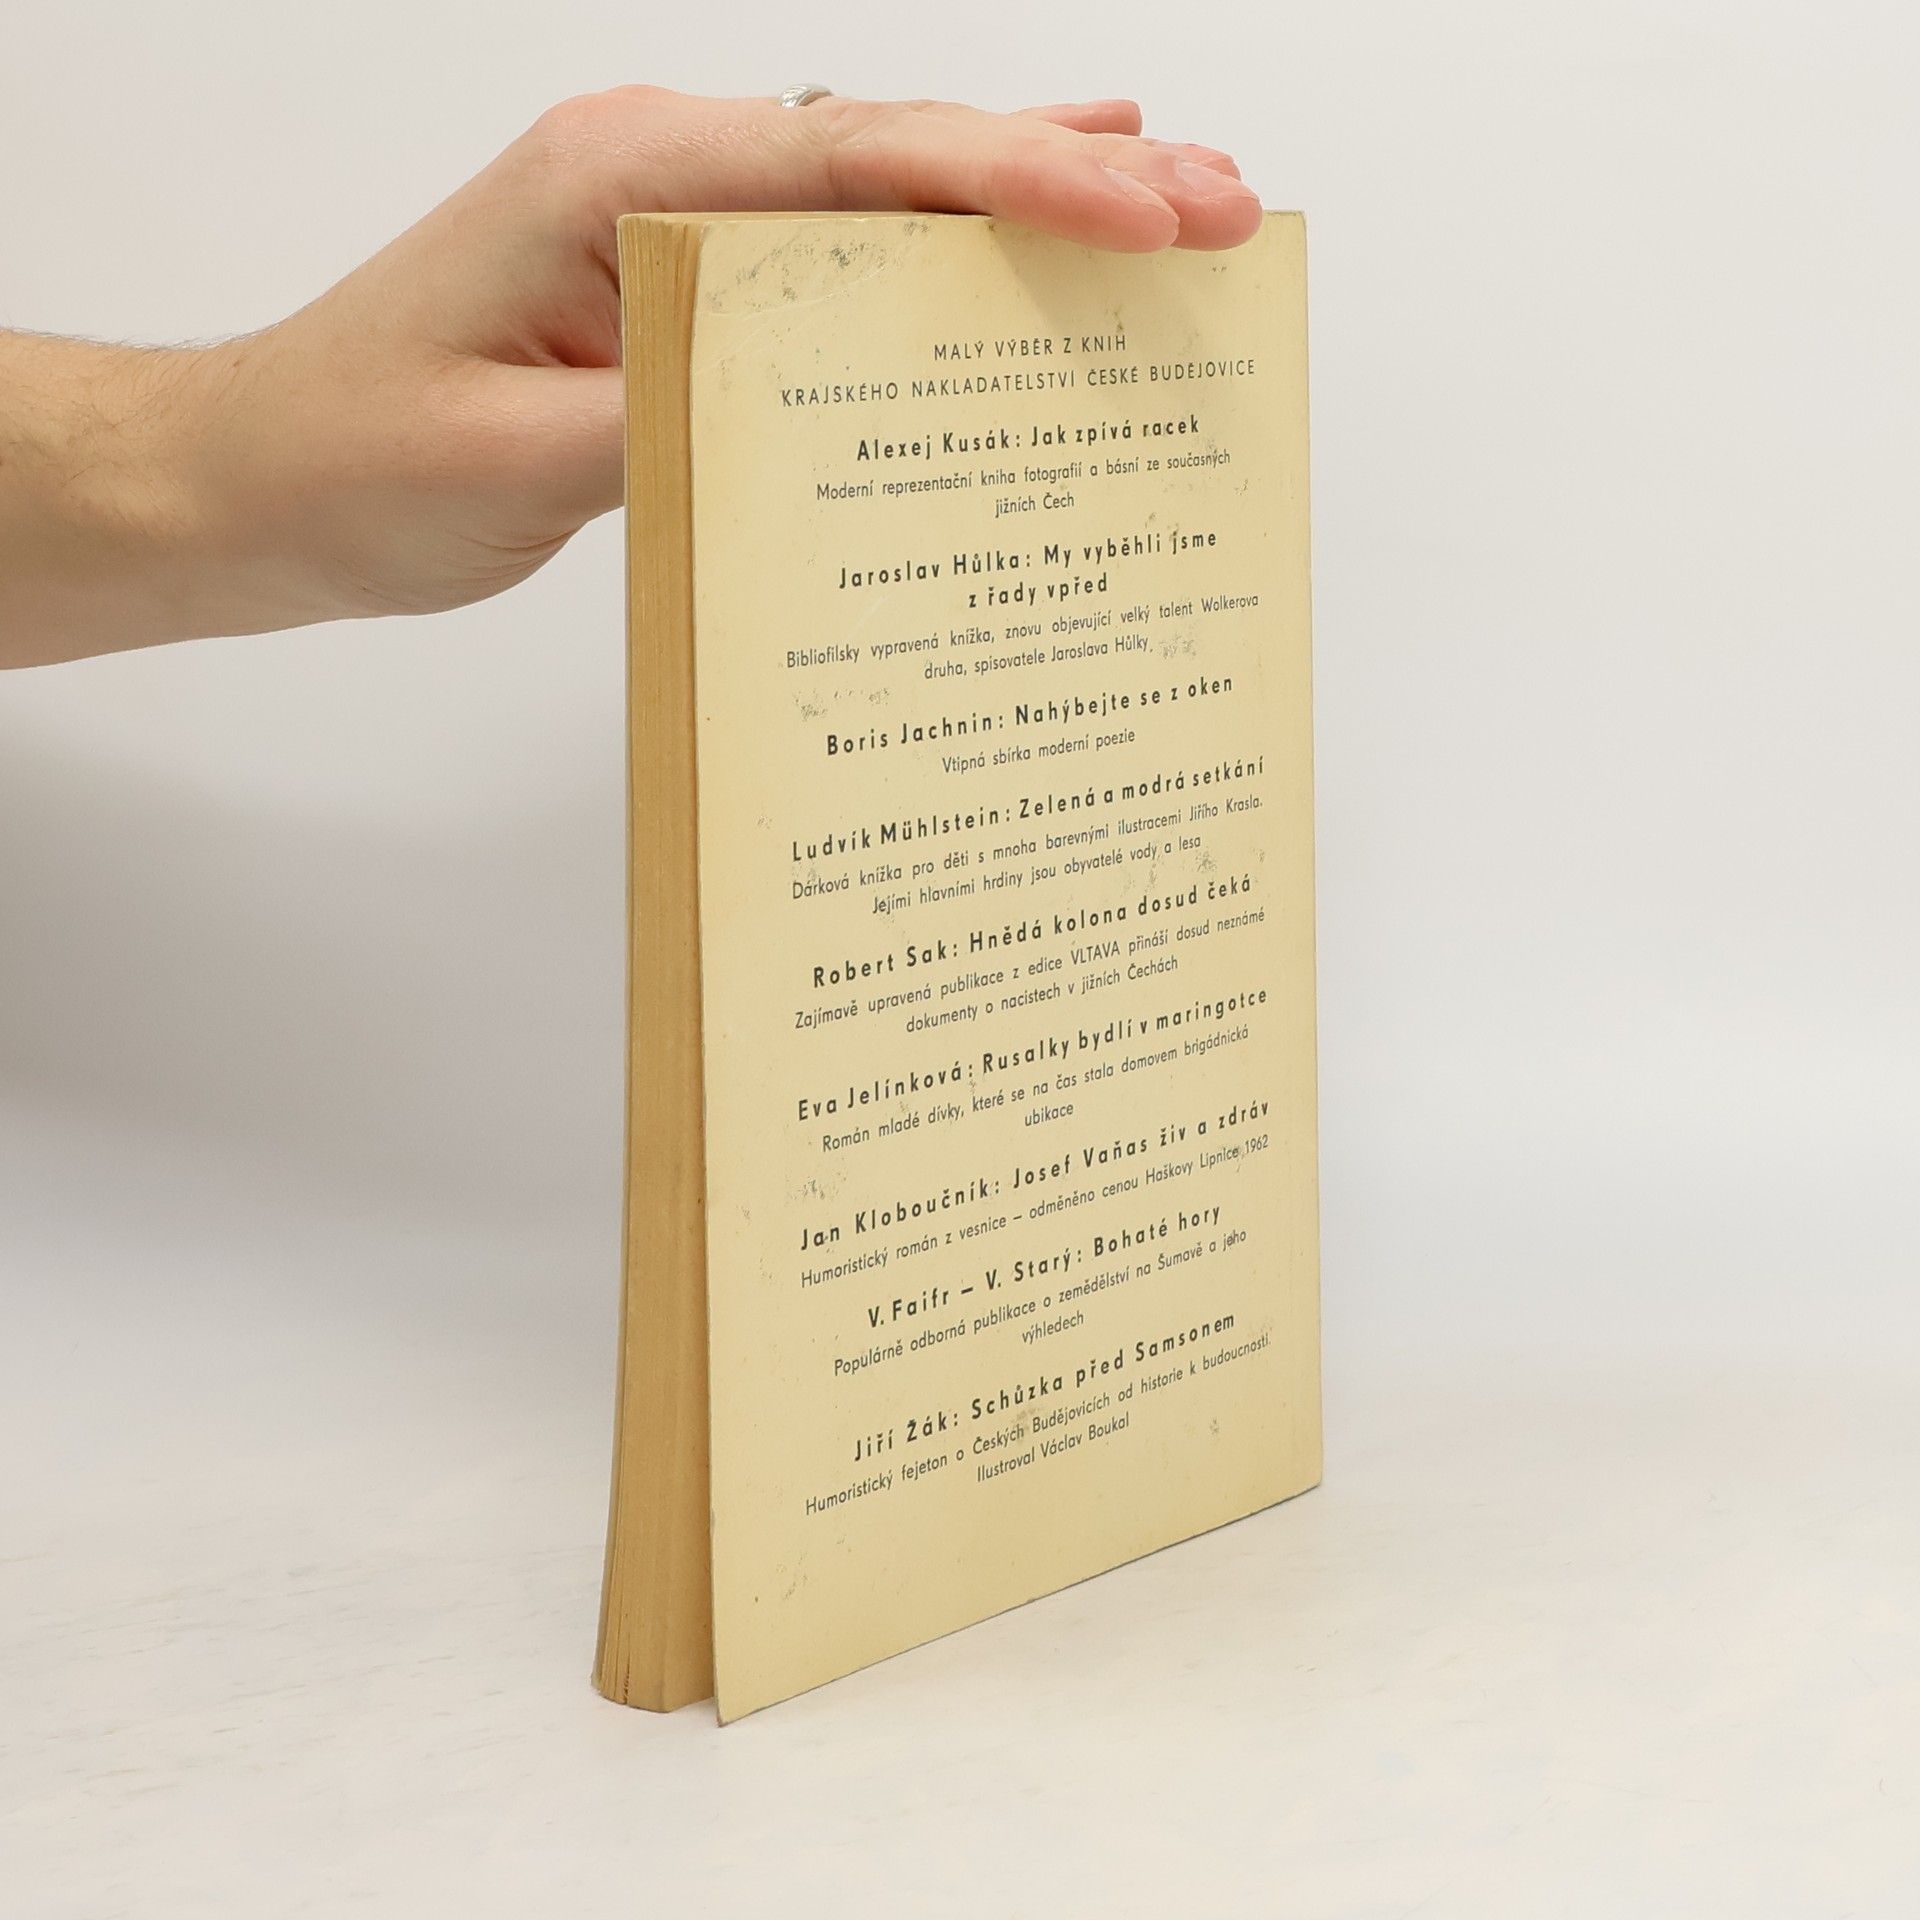 MALÝ VÝBĚR Z KNIH
KRAJSKÉHO NAKLADATELSTVÍ ČESKÉ BUDĚJOVICE
Alexej Kusák: Jak zpívá racek
Moderní reprezentační kniha fotografií a básní ze současných
jižních Čech
Jaroslav Hůlka: My vyběhli jsme
z řady vpřed
Bibliofilsky vypravená knížka, znovu objevující velký talent Wolkerova
druha, spisovatele Jaroslava Hůlky.
Boris Jachnin: Nahýbejte se z oken
Vtipná sbírka moderní poezie
Ludvík Mühlstein: Zelená a modrá setkání
Dárková knížka pro děti s mnoha barevnými ilustracemi Jiřího Krasla.
Jejími hlavními hrdiny jsou obyvatelé vody a lesa
Robert Sak: Hnědá kolona dosud čeká
Zajímavě upravená publikace z edice VLTAVA přináší dosud neznámé
dokumenty o nacistech v jižních Čechách
Eva Jelínková: Rusalky bydlí v maringotce
Román mladé dívky, které se na čas stala domovem brigádnická
ubikace
Jan Kloboučník: Josef Vaňas živ a zdráv
Humoristický román z vesnice – odměněno cenou Haškovy Lipnice 1962
V. Faifr – V. Starý: Bohaté hory
Populárně odborná publikace o zemědělství na Šumavě a jeho
výhledech
Jiří Žák: Schůzka před Samsonem
Humoristický fejeton o Českých Budějovicích od historie k budoucnosti.
Ilustroval Václav Boukal